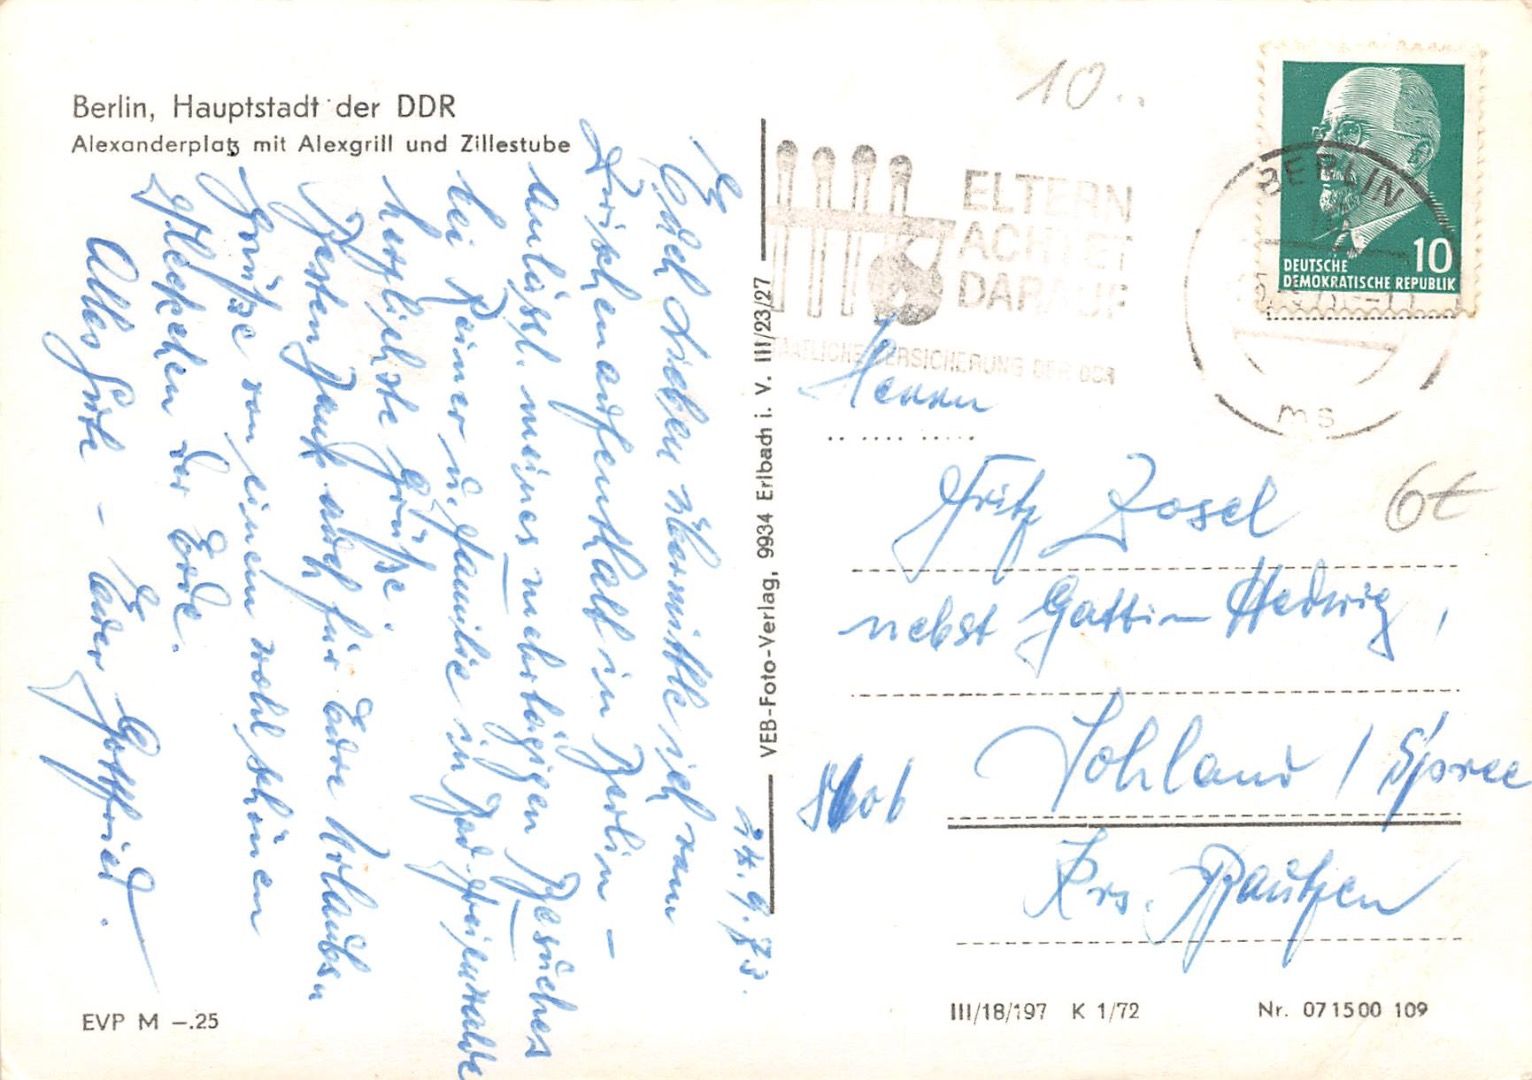 Berlin, Hauptstadt der DDR
Alexanderplatz mit Alexgrill und Zillestube
24.9.73.
Euch Lieben übermittle ich vom
Zwischenaufenthalt in Berlin –
anlässl. meines mehrtägigen Besuches
bei Reiner u. Familie in Bad-Freienwalde
herzlichste Grüße.
Besten Dank auch für Eure Urlaubs=
Grüße von einem wohl schönen
Fleckchen der Erde.
Alles Gute – Euer Gottfried.
VEB-Foto-Verlag, 9934 Erlbach i. V. III/23/27
10..
ELTERN
ACHTET
DARAUF
STAATLICHE VERSICHERUNG DER DDR
BERLIN
ms
10
DEUTSCHE
DEMOKRATISCHE REPUBLIK
Herrn
6t
Fritz Zosel
nebst Gattin Hedwig,
Sohland / Spree
Krs. Bautzen
EVP M –.25
III/18/197 K 1/72
Nr. 071500 109